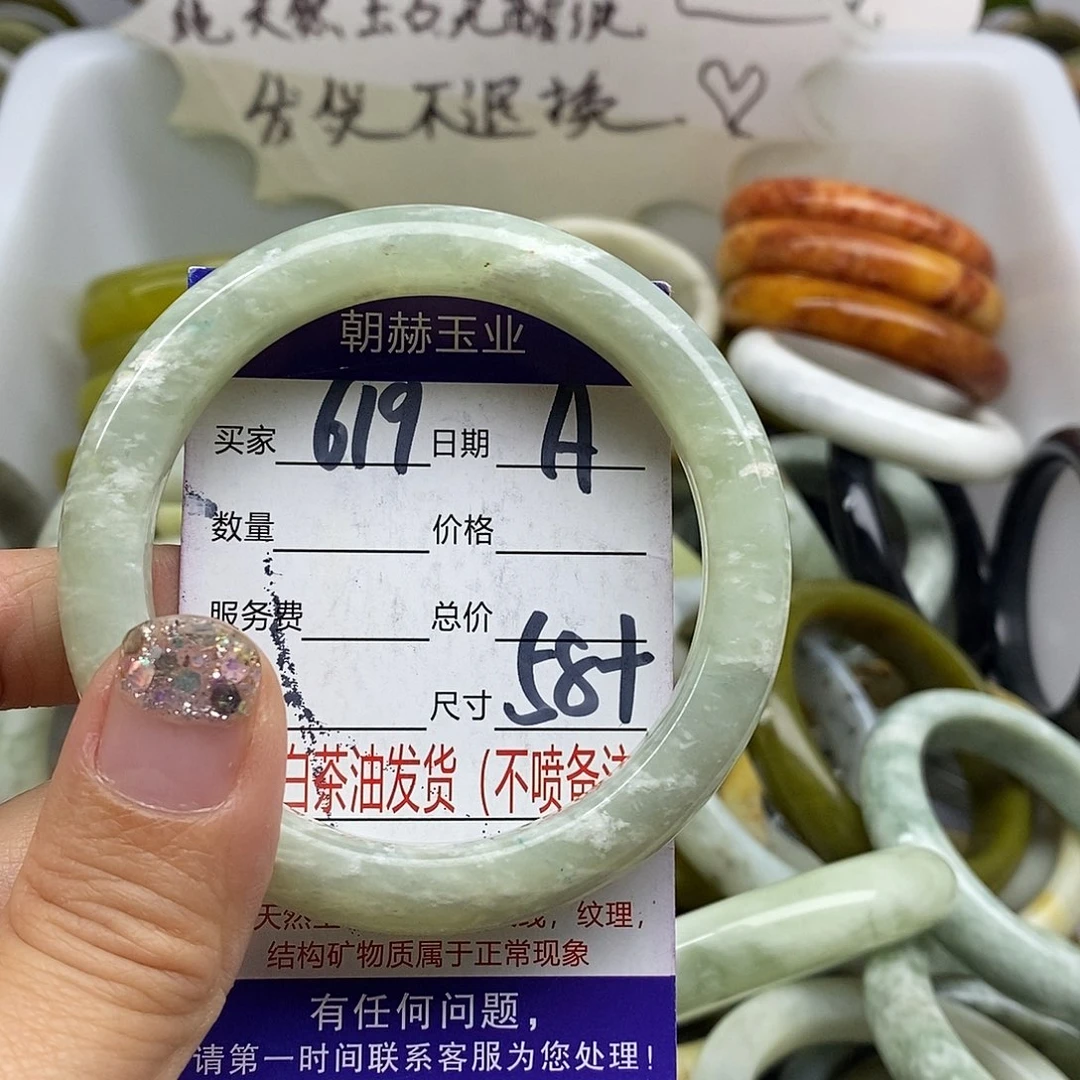 纯天然玉石无酸洗
售货不退换
朝赫玉业
买家 619 日期 A
数量 价格
服务费 总价
尺寸 58+
白茶油发货（不喷备注
天然 纹理，
结构矿物质属于正常现象
有任何问题，
请第一时间联系客服为您处理！